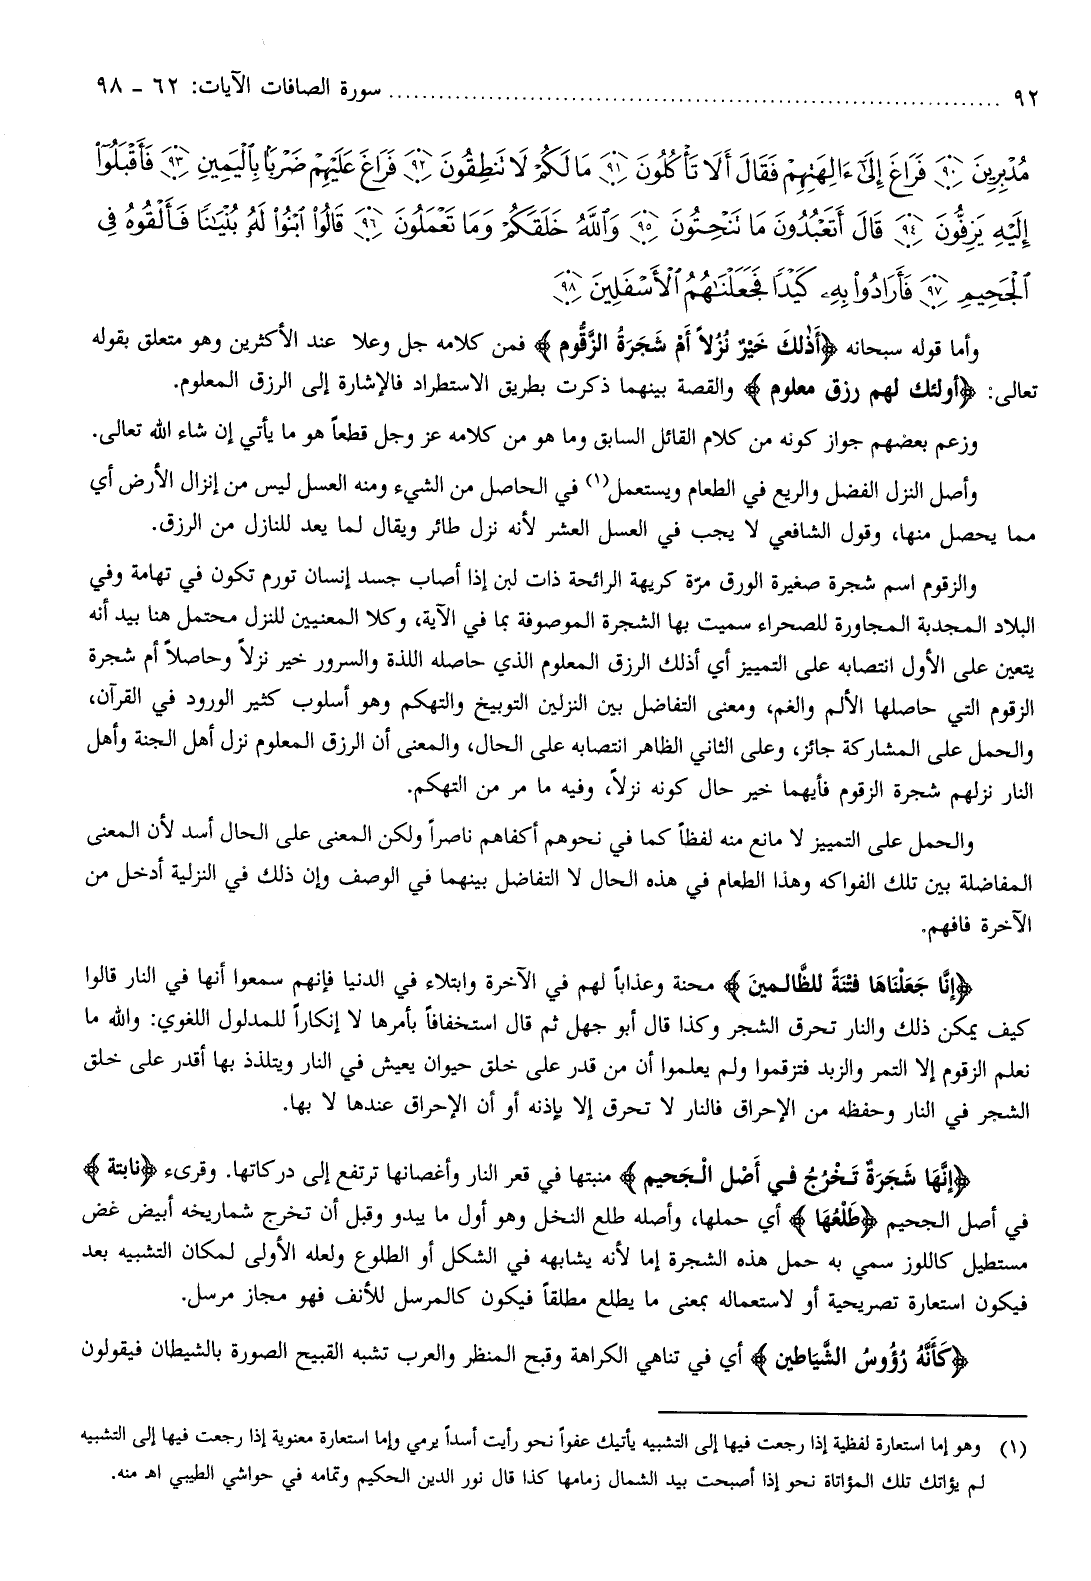 ٩٢ ........................................ سورة الصافات الآيات: ٦٢ - ٩٨
مُدْبِرِينَ ﴿٩٠﴾ فَرَاغَ إِلَىٰٓ ءَالِهَتِهِمْ فَقَالَ أَلَا تَأْكُلُونَ ﴿٩١﴾ مَا لَكُمْ لَا تَنطِقُونَ ﴿٩٢﴾ فَرَاغَ عَلَيْهِمْ ضَرْبًۢا بِٱلْيَمِينِ ﴿٩٣﴾ فَأَقْبَلُوٓا۟
إِلَيْهِ يَزِفُّونَ ﴿٩٤﴾ قَالَ أَتَعْبُدُونَ مَا تَنْحِتُونَ ﴿٩٥﴾ وَٱللَّهُ خَلَقَكُمْ وَمَا تَعْمَلُونَ ﴿٩٦﴾ قَالُوا۟ ٱبْنُوا۟ لَهُۥ بُنْيَـٰنًا فَأَلْقُوهُ فِى
ٱلْجَحِيمِ ﴿٩٧﴾ فَأَرَادُوا۟ بِهِۦ كَيْدًا فَجَعَلْنَـٰهُمُ ٱلْأَسْفَلِينَ ﴿٩٨﴾
وأما قوله سبحانه ﴿أَذٰلكَ خَيْرٌ نُزُلاً أَمْ شَجَرَةُ الزَّقُّوم﴾ فمن كلامه جل وعلا عند الأكثرين وهو متعلق بقوله
تعالى: ﴿أولئك لهم رزق معلوم﴾ والقصة بينهما ذكرت بطريق الاستطراد فالإشارة إلى الرزق المعلوم.
وزعم بعضهم جواز كونه من كلام القائل السابق وما هو من كلامه عز وجل قطعاً هو ما يأتي إن شاء الله تعالى.
وأصل النزل الفضل والريع في الطعام ويستعمل(١) في الحاصل من الشيء ومنه العسل ليس من إنزال الأرض أي
مما يحصل منها، وقول الشافعي لا يجب في العسل العشر لأنه نزل طائر ويقال لما يعد للنازل من الرزق.
والزقوم اسم شجرة صغيرة الورق مرّة كريهة الرائحة ذات لبن إذا أصاب جسد إنسان تورم تكون في تهامة وفي
البلاد المجدبة المجاورة للصحراء سميت بها الشجرة الموصوفة بما في الآية، وكلا المعنيين للنزل محتمل هنا بيد أنه
يتعين على الأول انتصابه على التمييز أي أذلك الرزق المعلوم الذي حاصله اللذة والسرور خير نزلاً وحاصلاً أم شجرة
الزقوم التي حاصلها الألم والغم، ومعنى التفاضل بين النزلين التوبيخ والتهكم وهو أسلوب كثير الورود في القرآن،
والحمل على المشاركة جائز، وعلى الثاني الظاهر انتصابه على الحال، والمعنى أن الرزق المعلوم نزل أهل الجنة وأهل
النار نزلهم شجرة الزقوم فأيهما خير حال كونه نزلاً، وفيه ما مر من التهكم.
والحمل على التمييز لا مانع منه لفظاً كما في نحوهم أكفاهم ناصراً ولكن المعنى على الحال أسد لأن المعنى
المفاضلة بين تلك الفواكه وهذا الطعام في هذه الحال لا التفاضل بينهما في الوصف وإن ذلك في النزلية أدخل من
الآخرة فافهم.
﴿إنَّا جَعَلْنَاهَا فتْنَةً للظَّالـمينَ﴾ محنة وعذاباً لهم في الآخرة وابتلاء في الدنيا فإنهم سمعوا أنها في النار قالوا
كيف يمكن ذلك والنار تحرق الشجر وكذا قال أبو جهل ثم قال استخفافاً بأمرها لا إنكاراً للمدلول اللغوي: والله ما
نعلم الزقوم إلا التمر والزبد فتزقموا ولم يعلموا أن من قدر على خلق حيوان يعيش في النار ويتلذذ بها أقدر على خلق
الشجر في النار وحفظه من الإحراق فالنار لا تحرق إلا بإذنه أو أن الإحراق عندها لا بها.
﴿إنَّهَا شَجَرَةٌ تَـخْرُجُ فـي أَصْل الْـجَحيم﴾ منبتها في قعر النار وأغصانها ترتفع إلى دركاتها. وقرىء ﴿نابتة﴾
في أصل الجحيم ﴿طَلْعُهَا﴾ أي حملها، وأصله طلع النخل وهو أول ما يبدو وقبل أن تخرج شماريخه أبيض غض
مستطيل كاللوز سمي به حمل هذه الشجرة إما لأنه يشابهه في الشكل أو الطلوع ولعله الأولى لمكان التشبيه بعد
فيكون استعارة تصريحية أو لاستعماله بمعنى ما يطلع مطلقاً فيكون كالمرسل للأنف فهو مجاز مرسل.
﴿كَأَنَّهُ رُؤُوسُ الشَّيَاطين﴾ أي في تناهي الكراهة وقبح المنظر والعرب تشبه القبيح الصورة بالشيطان فيقولون
(١) وهو إما استعارة لفظية إذا رجعت فيها إلى التشبيه يأتيك عفواً نحو رأيت أسداً يرمي وإما استعارة معنوية إذا رجعت فيها إلى التشبيه
لم يؤاتك تلك المؤاتاة نحو إذا أصبحت بيد الشمال زمامها كذا قال نور الدين الحكيم وتمامه في حواشي الطيبي اهـ منه.